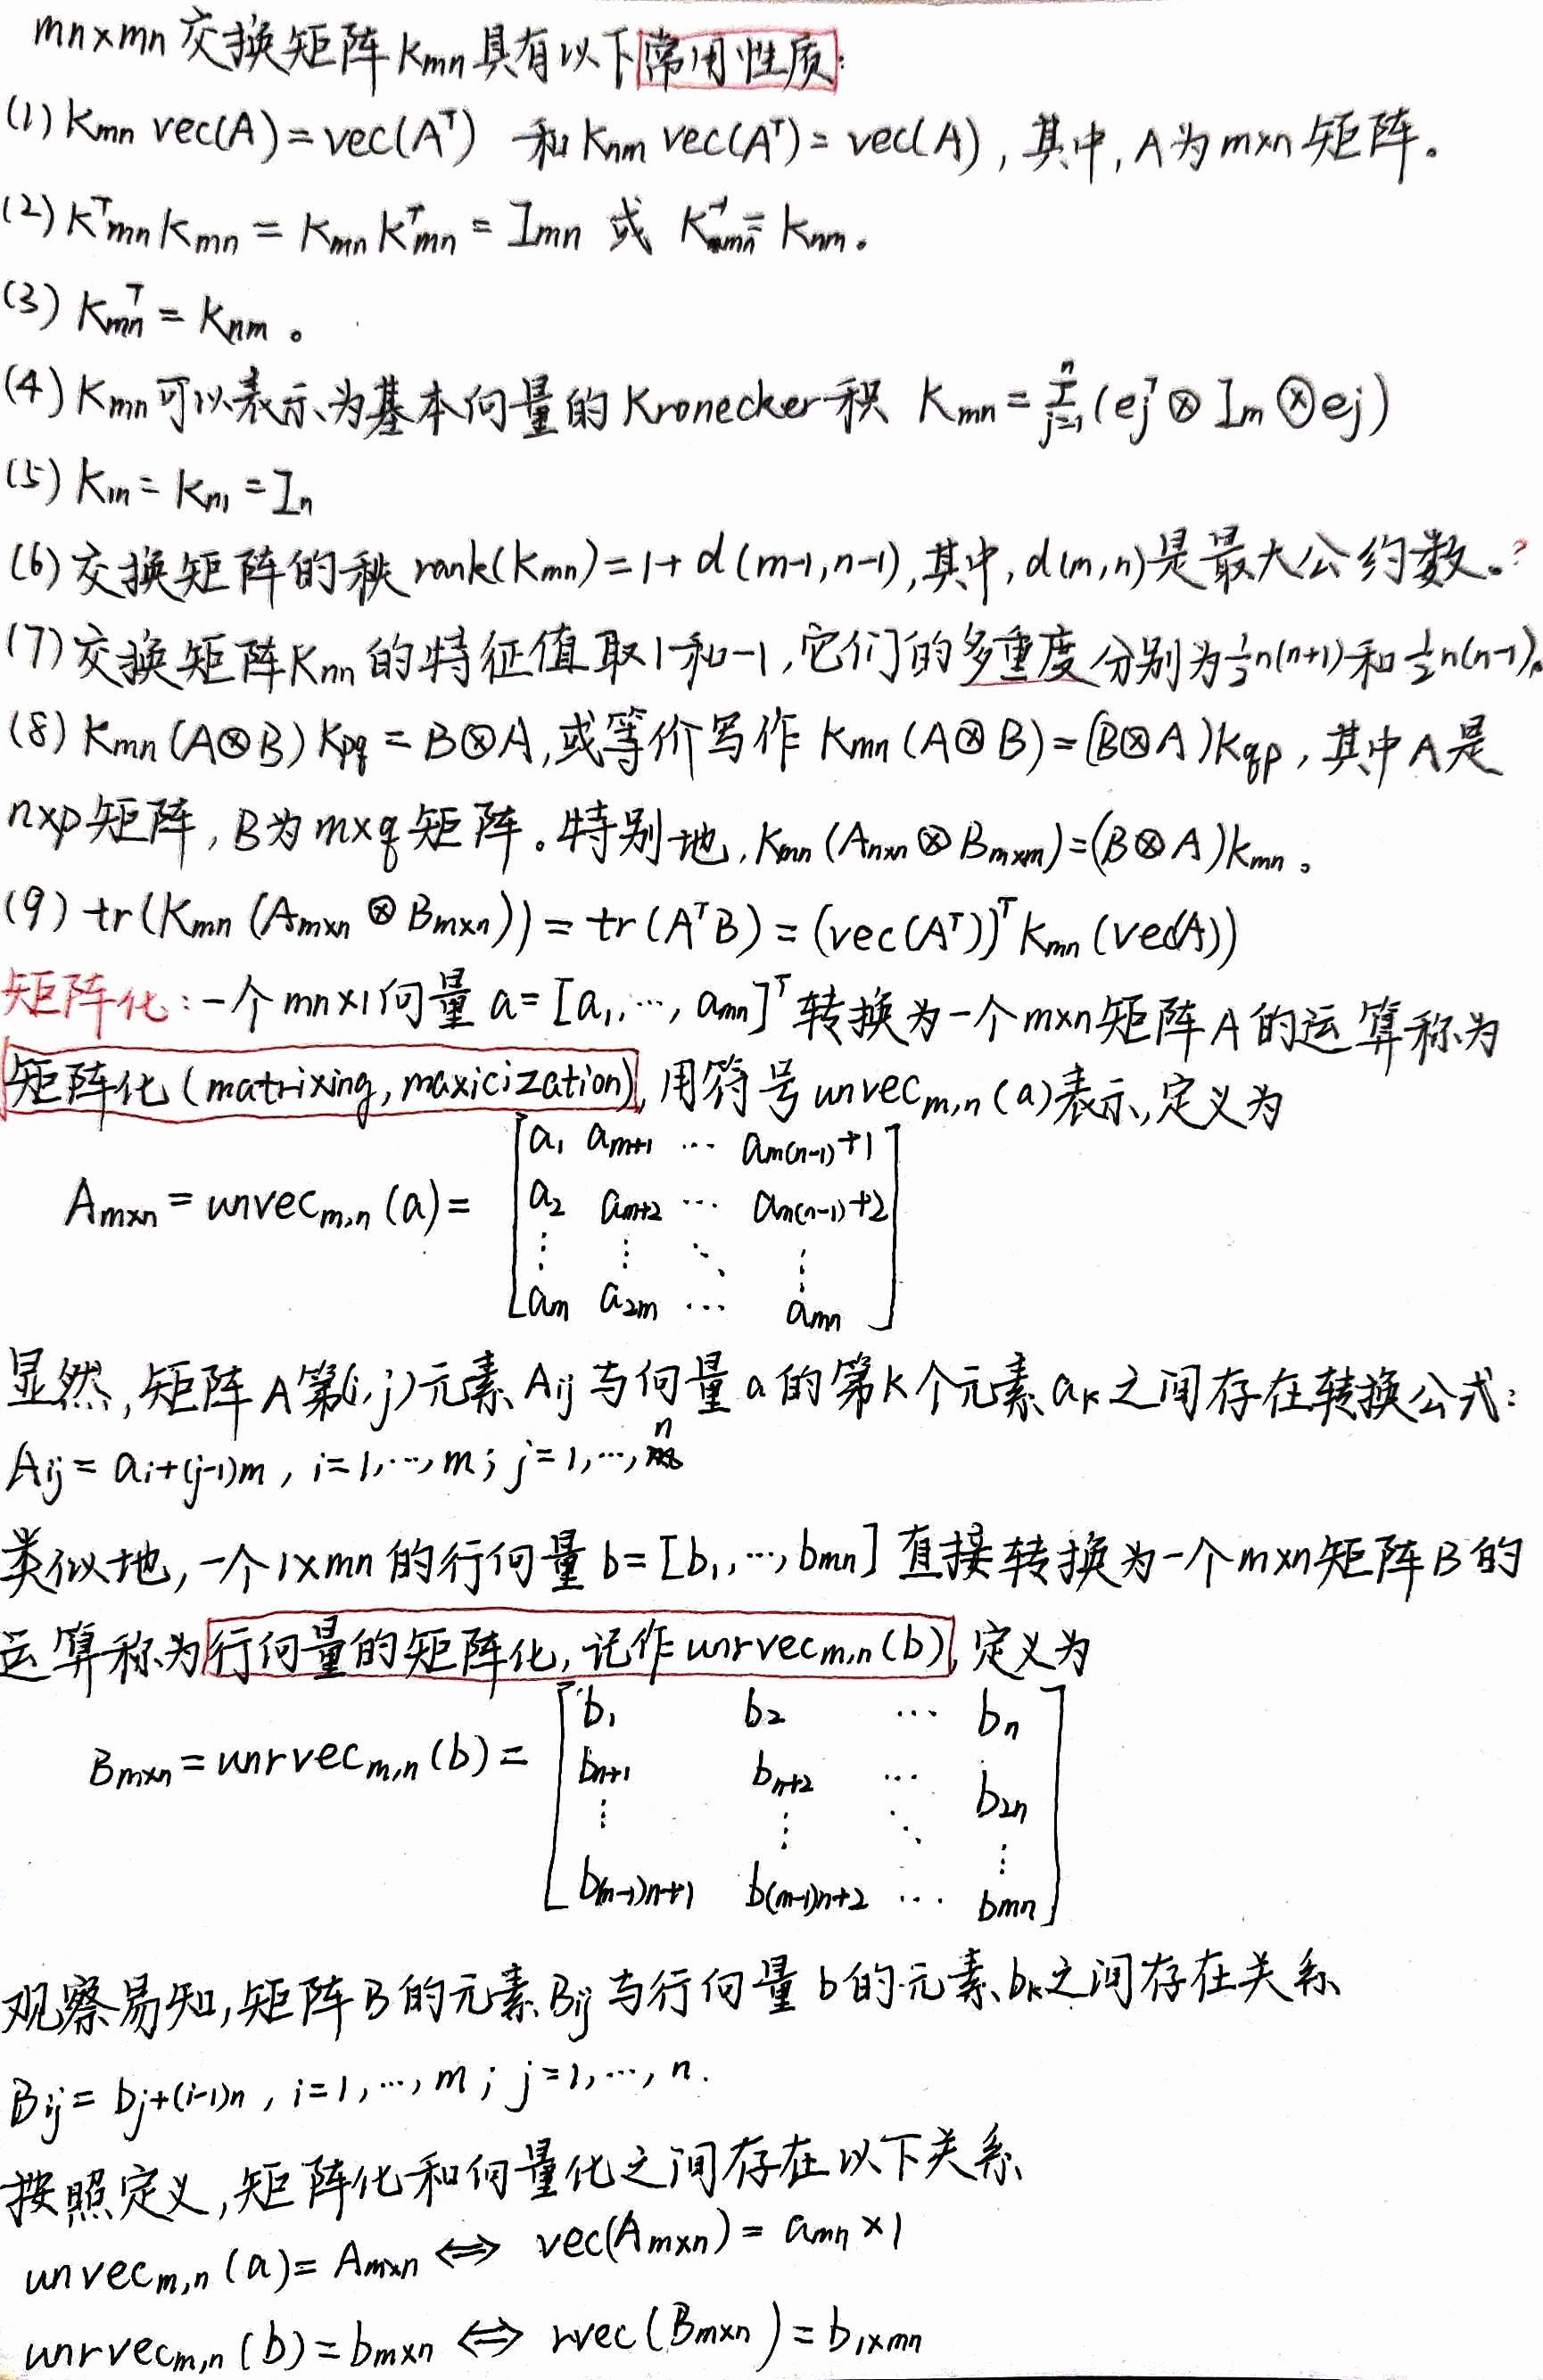 mn×mn 交换矩阵 Kmn 具有以下常用性质:
(1) Kmn vec(A) = vec(Aᵀ) 和 Knm vec(Aᵀ) = vec(A), 其中, A为m×n矩阵。
(2) Kᵀmn Kmn = Kmn Kᵀmn = Imn 或 K⁻¹mn = Knm。
(3) Kmnᵀ = Knm。
(4) Kmn可以表示为基本向量的Kronecker积 Kmn = Σⁿⱼ₌₁(ejᵀ ⊗ Im ⊗ ej)
(5) K1n = Kn1 = In
(6) 交换矩阵的秩 rank(Kmn) = 1 + d(m-1, n-1), 其中, d(m,n)是最大公约数。?
(7) 交换矩阵Knn的特征值取1和-1, 它们的多重度分别为½n(n+1)和½n(n-1)。
(8) Kmn(A⊗B)Kpq = B⊗A, 或等价写作 Kmn(A⊗B) = (B⊗A)Kqp, 其中A是
n×p矩阵, B为m×q矩阵。特别地, Kmn(An×n ⊗ Bm×m) = (B⊗A)Kmn。
(9) tr(Kmn(Am×n ⊗ Bm×n)) = tr(AᵀB) = (vec(Aᵀ))ᵀ Kmn(vec(A))
矩阵化: 一个mn×1向量 a = [a1, ···, amn]ᵀ 转换为一个m×n矩阵A的运算称为
矩阵化(matrixing, maxicization), 用符号unvecm,n(a)表示, 定义为
Am×n = unvecm,n(a) =
[a1 am+1 ··· am(n-1)+1
a2 am+2 ··· am(n-1)+2
⋮ ⋮ ⋱ ⋮
am a2m ··· amn]
显然, 矩阵A第(i,j)元素Aij与向量a的第k个元素ak之间存在转换公式:
Aij = ai+(j-1)m, i=1,···,m; j=1,···,n
类似地, 一个1×mn的行向量b = [b1, ···, bmn]直接转换为一个m×n矩阵B的
运算称为行向量的矩阵化, 记作unrvecm,n(b), 定义为
Bm×n = unrvecm,n(b) =
[b1 b2 ··· bn
bn+1 bn+2 ··· b2n
⋮ ⋮ ⋱ ⋮
b(m-1)n+1 b(m-1)n+2 ··· bmn]
观察易知, 矩阵B的元素Bij与行向量b的元素bk之间存在关系
Bij = bj+(i-1)n, i=1,···,m; j=1,···,n.
按照定义, 矩阵化和向量化之间存在以下关系
unvecm,n(a) = Am×n ⟺ vec(Am×n) = amn×1
unrvecm,n(b) = bm×n ⟺ rvec(Bm×n) = b1×mn